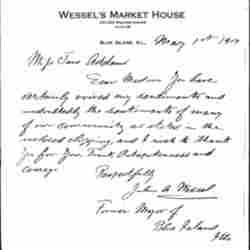 WESSEL'S MARKET HOUSE
BLUE ISLAND, ILL. May 1st
Miss Jane Addams
Dear Madam You have
certainly voiced my sentiments and
undoubtedly the sentiments of many
of our community as stated in the
enclosed clipping, and I wish to thank
you for your Frank Outspokenness and
courage
Respectfully
John A
Former Mayor of
Blue Island
Ills.